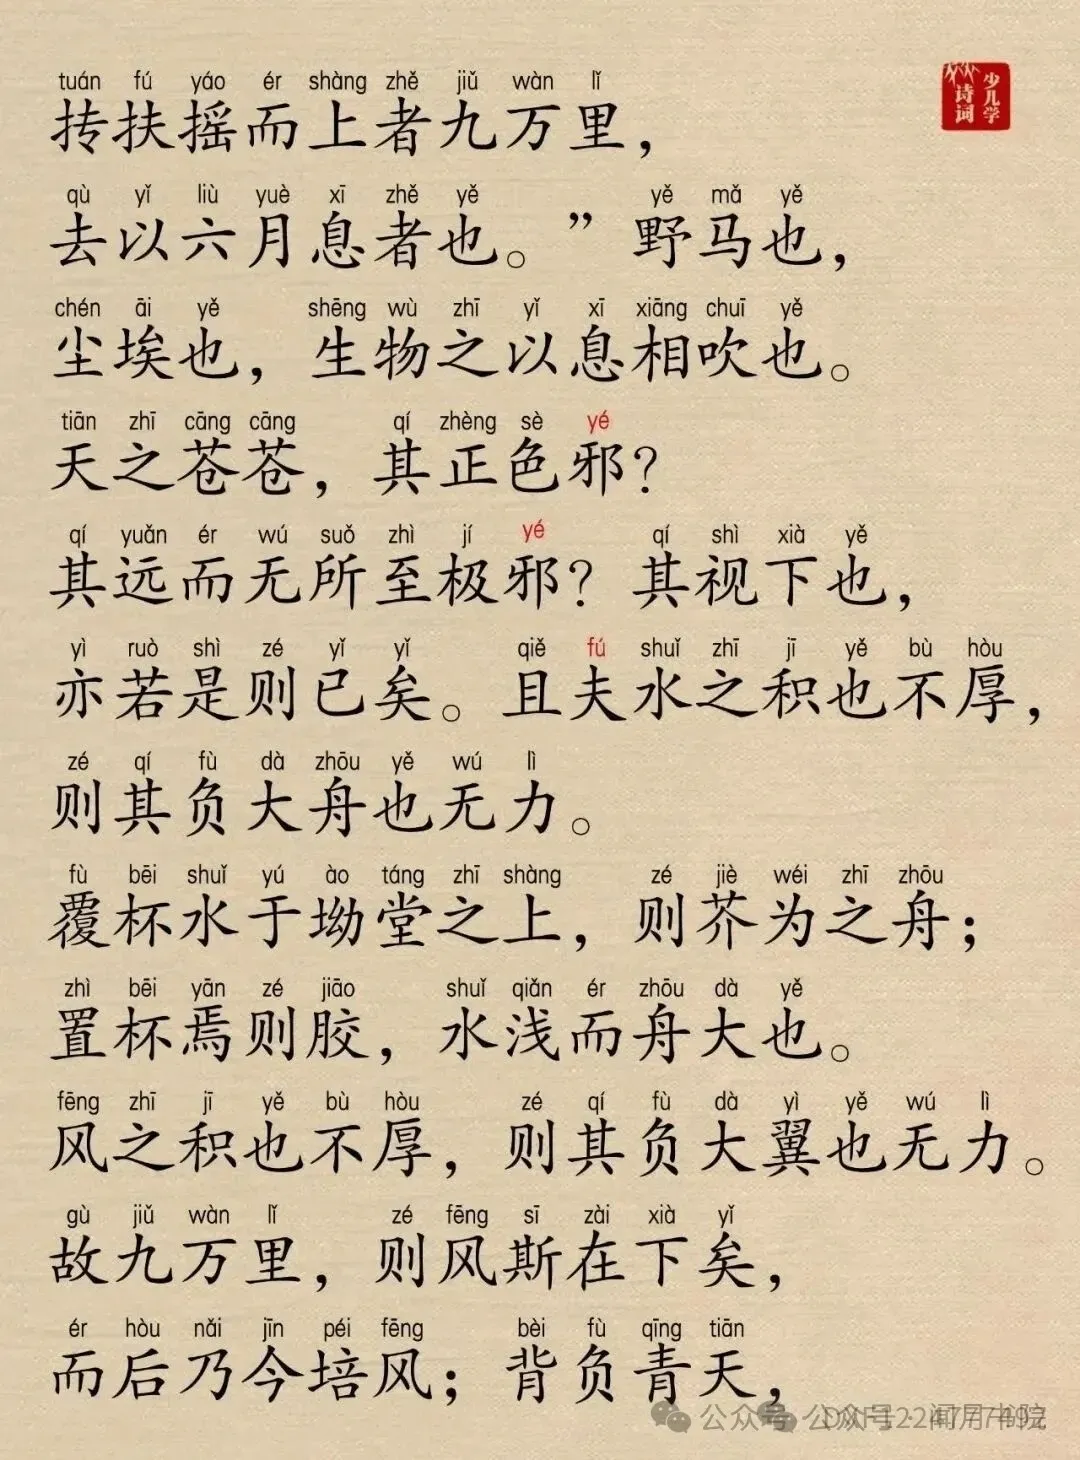 tuán fú yáo ér shàng zhě jiǔ wàn lǐ
抟扶摇而上者九万里，
少儿学
诗词
qù yǐ liù yuè xī zhě yě yě mǎ yě
去以六月息者也。”野马也，
chén āi yě shēng wù zhī yǐ xī xiāng chuī yě
尘埃也，生物之以息相吹也。
tiān zhī cāng cāng qí zhèng sè yé
天之苍苍，其正色邪？
qí yuǎn ér wú suǒ zhì jí yé qí shì xià yě
其远而无所至极邪？其视下也，
yì ruò shì zé yǐ yǐ qiě fú shuǐ zhī jī yě bù hòu
亦若是则已矣。且夫水之积也不厚，
zé qí fù dà zhōu yě wú lì
则其负大舟也无力。
fù bēi shuǐ yú ào táng zhī shàng zé jiè wéi zhī zhōu
覆杯水于坳堂之上，则芥为之舟；
zhì bēi yān zé jiāo shuǐ qiǎn ér zhōu dà yě
置杯焉则胶，水浅而舟大也。
fēng zhī jī yě bù hòu zé qí fù dà yì yě wú lì
风之积也不厚，则其负大翼也无力。
gù jiǔ wàn lǐ zé fēng sī zài xià yǐ
故九万里，则风斯在下矣，
ér hòu nǎi jīn péi fēng bèi fù qīng tiān
而后乃今培风；背负青天，
公众号 公众号